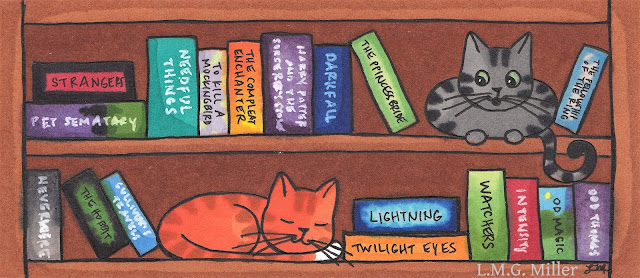 STRANGERS
PET SEMATARY
NEEDFUL
THINGS
TO KILL A
MOCKINGBIRD
THE COMPLEAT
ENCHANTER
HARRY POTTER
AND THE
SORCERER'S STONE
DARKFALL
THE PRINCESS BRIDE
THE FELLOWSHIP
OF THE
RING
NEVERWHERE
THE HOBBIT
GULLIVER'S
TRAVELS
LIGHTNING
TWILIGHT EYES
WATCHERS
INTENSITY
ODD MAGIC
ODD THINGS
L.M.G. Miller